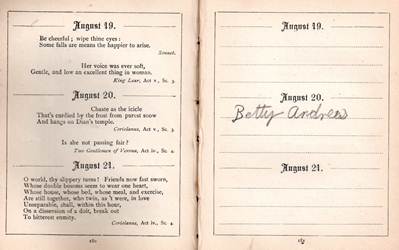 August 19.
Be cheerful; wipe thine eyes:
Some falls are means the happier to arise.
Sonnet.
Her voice was ever soft,
Gentle, and low an excellent thing in woman.
King Lear, Act v., Sc. 3.
August 20.
Chaste as the icicle
That's curdied by the frost from purest snow
And hangs on Dian's temple.
Coriolanus, Act v., Sc. 3.
Is she not passing fair?
Two Gentlemen of Verona, Act iv., Sc. 4.
August 21.
O world, thy slippery turns! Friends now fast sworn,
Whose double bosoms seem to wear one heart,
Whose house, whose bed, whose meal, and exercise,
Are still together, who twin, as 't were, in love
Unseparable, shall, within this hour,
On a dissension of a doit, break out
To bitterest enmity.
Coriolanus, Act iv., Sc. 4.
August 19.
August 20.
Betty Andrews
August 21.